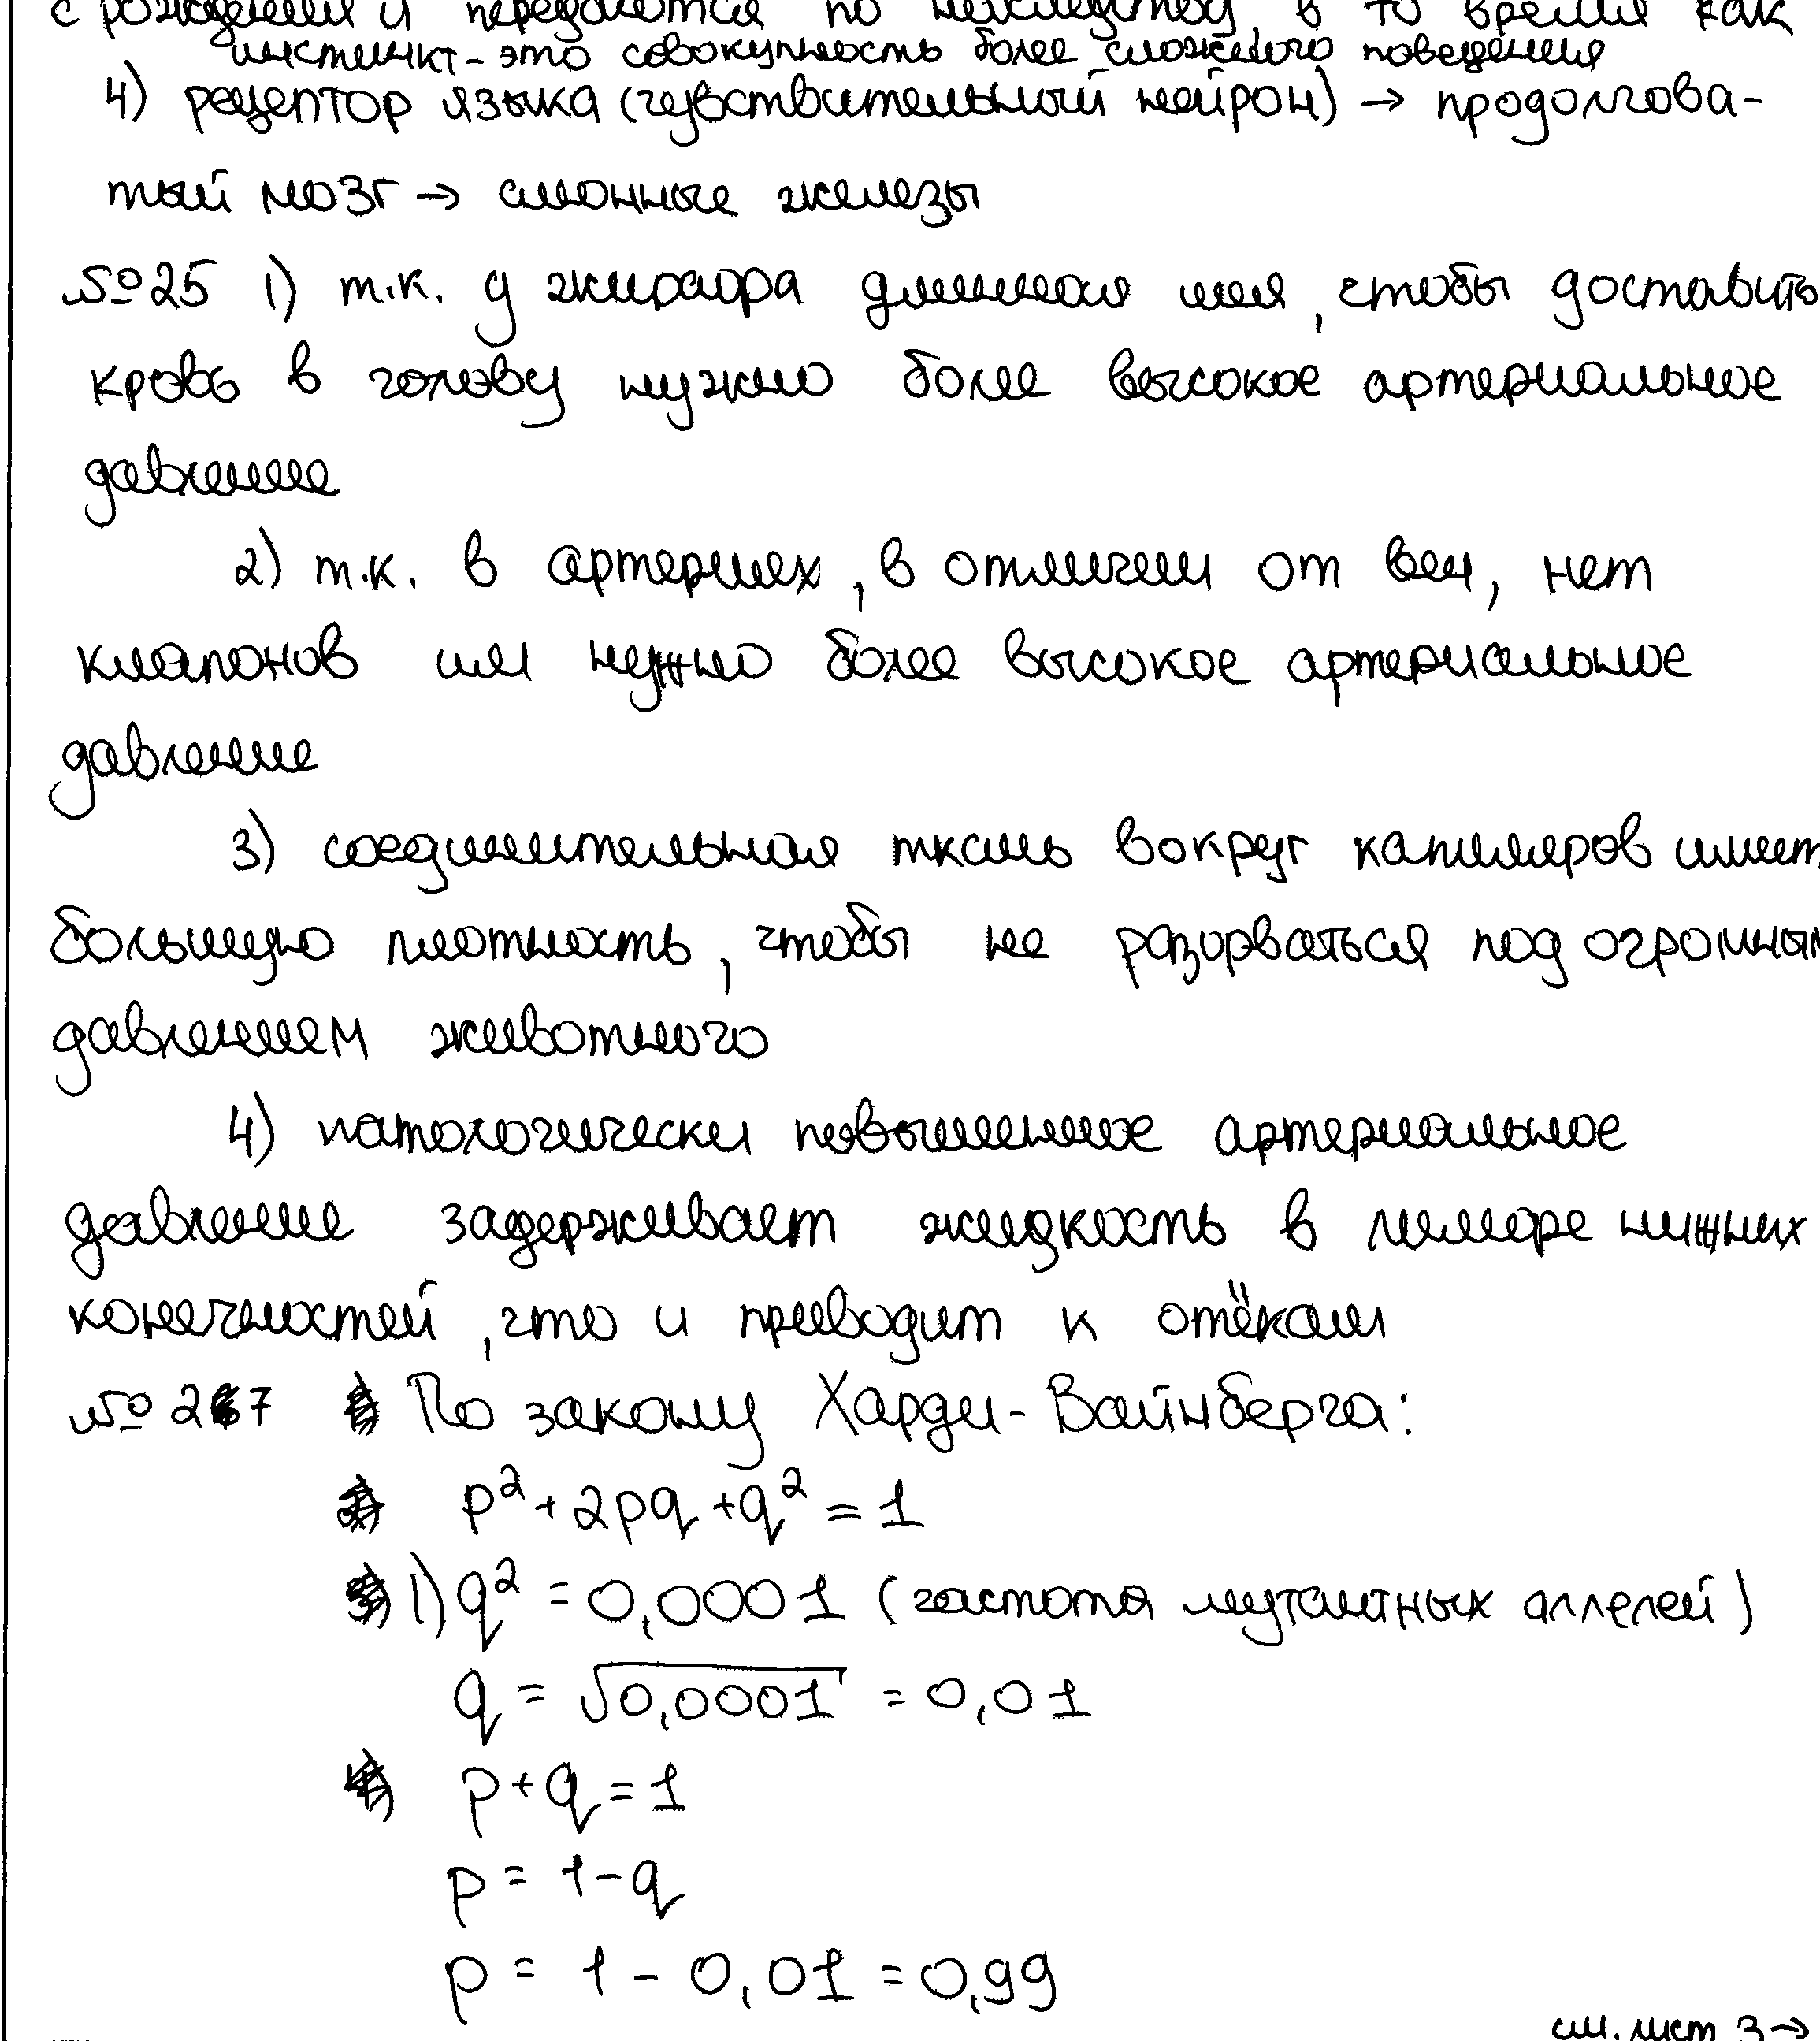 с рождения и передаются по наследству, в то время как
инстинкт - это совокупность более сложного поведения
4) рецептор языка (чувствительный нейрон) → продолгова-
тый мозг → слюнные железы
№25 1) т.к. у жирафа длинная шея, чтобы доставить
кровь в голову нужно более высокое артериальное
давление
2) т.к. в артериях, в отличии от вен, нет
клапонов им нужно более высокое артериальное
давление
3) соединительная ткань вокруг капиляров имеет
большую плотность, чтобы не разорваться под огромным
давлением животного
4) патологически повышенное артериальное
давление задерживает жидкость в лимфе нижних
конечностей, что и приводит к отёкам
№27 По закону Харди-Вайнберга:
p² + 2pq + q² = 1
1) q² = 0,0001 (частота мутантных аллелей)
q = √0,0001 = 0,01
p + q = 1
p = 1 - q
p = 1 - 0,01 = 0,99
см. лист 3 →